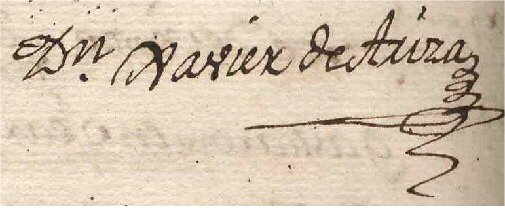 Dn. Xavier de Aiza